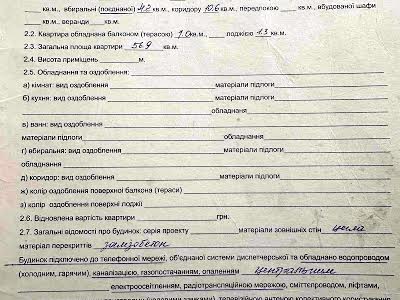 кв.м., вбиральні (поєднаної) 4.2 кв.м., коридору 10.6 кв.м., передпокою кв.м., вбудованої шафи
кв.м., веранди кв.м.
2.2. Квартира обладнана балконом (терасою) 1.0 кв.м., лоджією 1.3 кв.м.
2.3. Загальна площа квартири 56.9 кв.м.
2.4. Висота приміщень м.
2.5. Обладнання та оздоблення:
а) кімнат: вид оздоблення матеріали підлоги
б) кухня: вид оздоблення матеріали підлоги
обладнана
в) ванн: вид оздоблення
матеріали підлоги обладнання
г) вбиральня: вид оздоблення матеріали підлоги
обладнання
д) коридор: вид оздоблення матеріали підлоги
ж) колір оздоблення поверхні балкона (тераси)
з) колір оздоблення поверхні лоджії
2.6. Відновлена вартість квартири грн.
2.7. Загальні відомості про будинок: серія проекту матеріали зовнішніх стін цегла
матеріал перекриттів залізобетон
Будинок підключено до телефонної мережі, об'єднаної системи диспетчерської та обладнано водопроводом
(холодним, гарячим), каналізацією, газопостачанням, опаленням центральним
електроосвітленням, радіотрансляційною мережею, сміттепроводом, ліфтами,
замками), телевізійною антеною колективного користування